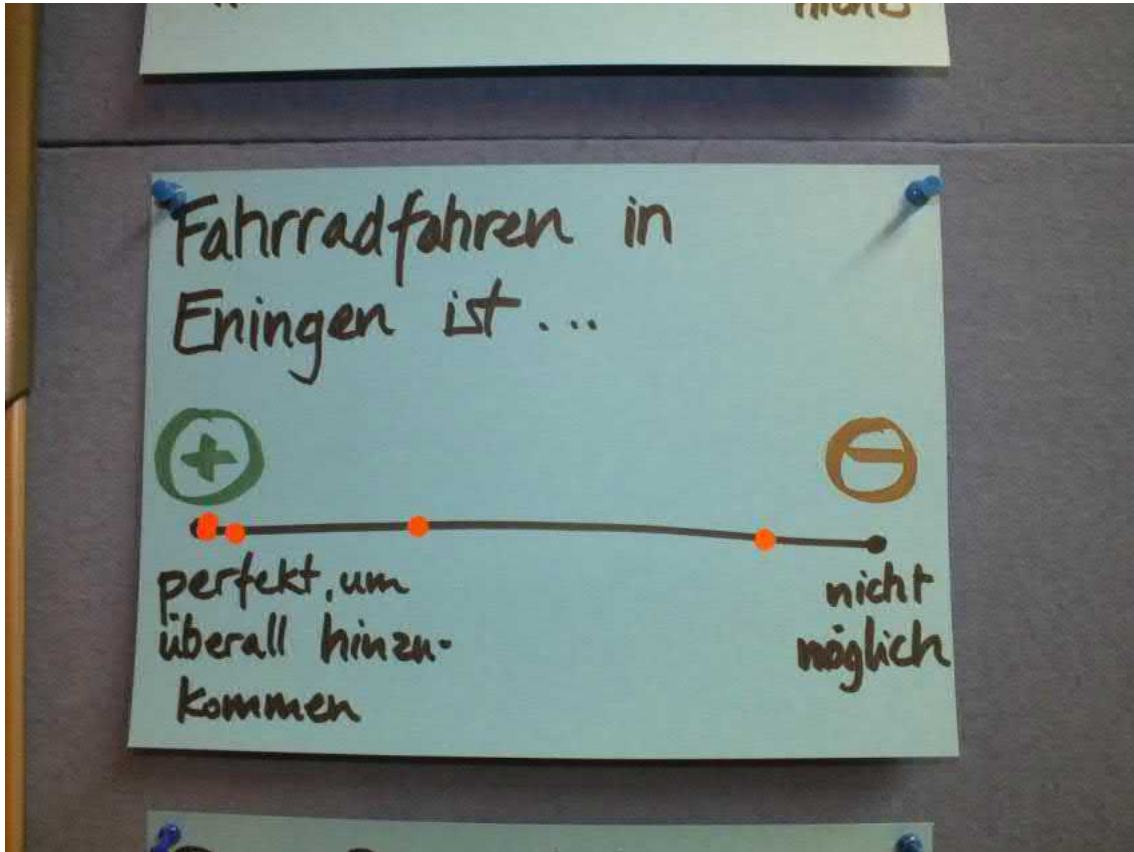 Fahrradfahren in
Eningen ist...
+
−
perfekt, um
überall hinzu-
kommen
nicht
möglich